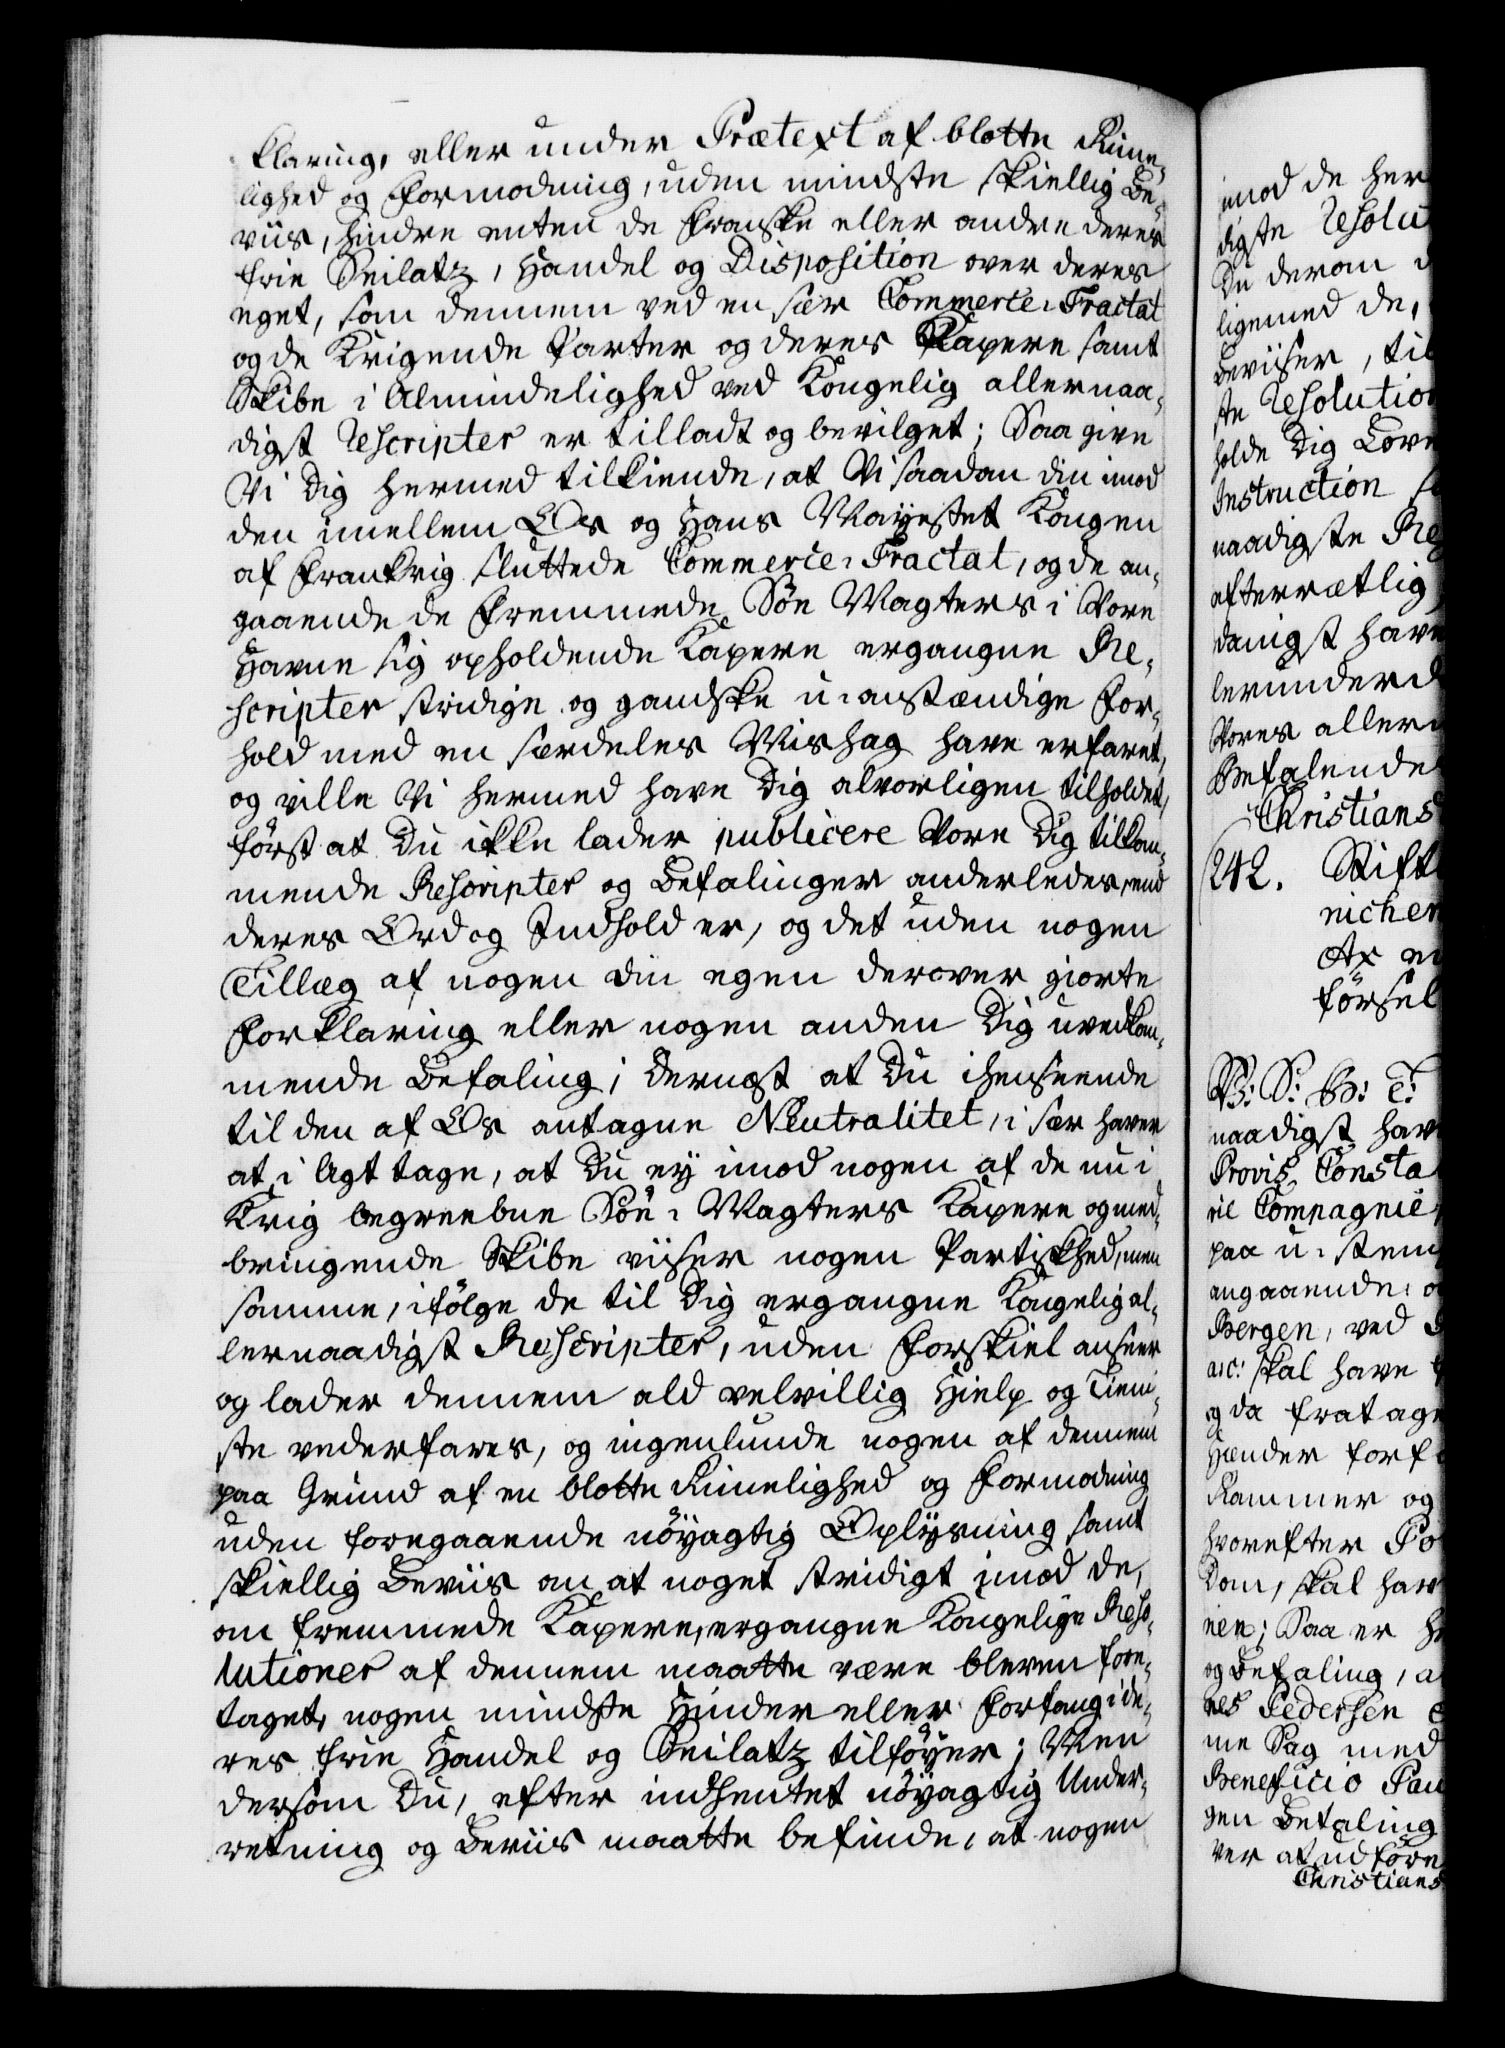 klaring, eller under Prætext af blotte Rime-
lighed og Formodning, uden mindste skiellig Be-
viis, hindre enten de Franske eller andre deres
frie Seilatz, Handel og Disposition over deres
eget, som dennem ved en sær Commerce-Tractat
og de Krigende Parter og deres Kapere samt
Skibe i Almindelighed ved Kongelig allernaa-
digst Rescripter er tilladt og bevilget; Saa give
Vi Dig hermed tilkiende, at Vi saadan din imod
den imellem Os og Hans Mayestet Kongen
af Frankrig sluttede Commerce-Tractat, og de an-
gaaende de Fremmede Søe Magters i Vore
Havne sig opholdende Kapere ergangne Re-
scripter stridige og gandske u-anstændige For-
hold med en særdeles Mishag have erfaret,
og ville Vi hermed have Dig alvorligen tilholdet,
først at Du ikke lader publicere Vore Dig tilkom-
mende Rescripter og Befalinger anderledes, end
deres Ord og Indhold er, og det uden nogen
Tillæg af nogen din egen derover giorte
Forklaring eller nogen anden Dig uvedkom-
mende Befaling; Dernæst at Du i henseende
til den af Os antagne Neutralitet, i sær haver
at i Agt tage, at Du ey imod nogen af de nu i
Krig begreebne Søe-Magters Kapere og med-
bringende Skibe viiser nogen Partiskhed, men
samme, ifølge de til Dig ergangne Kongelig al-
lernaadigst Rescripter, uden Forskiel anseer
og lader dennem ald velvillig Hielp og Tieni-
ste vederfares, og ingenlunde nogen af dennem
paa Grund af en blotte Rimelighed og Formodning
uden foregaaende nöyagtig Oplysning samt
skiellig Beviis om at noget stridigt imod de,
om fremmede Kapere, ergangne Kongelige Reso-
lutioner af dennem maatte være bleven fore-
taget, nogen mindste Hinder eller Forfang i de-
res frie Handel og Seilatz tilföyer; Men
dersom Du, efter indhentet nöyagtig Under-
retning og Beviis maatte befinde, at nogen
imod de her
digste Resolu
Du derom
ligemed de,
Beviiser, til
ste Resolution
holde Dig Love
Instruction
naadigste Re
efterretlig
danigst have
lerunderd
Vores allern
Befalende
Christians
242. Stift
nichen
Ax en
førsel
V: S: G: T:
naadigst hav
Provis Consta
ril Compagnie
paa u-stem
angaaende
Bergen, ved
arc: skal have
og da fratage
Hænder forf
Kammer og
hvorefter Po
Dom, skal hav
nen; Saa er H
og Befaling, a
nes Pedersen
me Sag med
Beneficio Pau
gen Betaling
ver at udføre
Christians